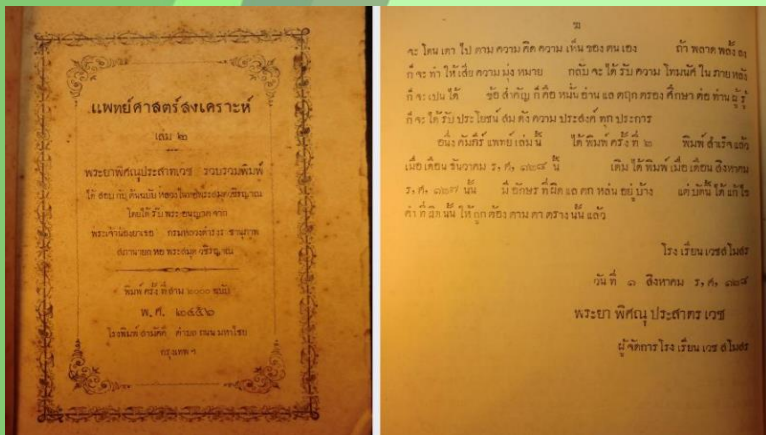 แพทย์ศาสตร์สงเคราะห์
เล่ม ๒
พระยาพิศณุประสาทเวช รวบรวมพิมพ์
ได้ สอบ กับ ต้นฉบับ หลวง ในหอพระสมุดวชิรญาณ
โดยได้ รับ พระ อนุญาต จาก
พระเจ้าน้องยาเธอ กรมหลวงดำรง ราชานุภาพ
สภานายก หอ พระสมุด วชิรญาณ
พิมพ์ ครั้ง ที่สาม ๒๐๐๐ ฉบับ
พ, ศ, ๒๔๕๖
โรงพิมพ์ สามัคคี ตำบล ถนน มหาไชย
กรุงเทพ ฯ
ฆ
จะ โดน เดา ไป ตาม ความ คิด ความ เห็น ของ ตน เอง ถ้า พลาด พลั้ง ลง
ก็ จะ ทำ ให้ เสีย ความ มุ่ง หมาย กลับ จะ ได้ รับ ความ โทมนัศ ใน ภาย หลัง
ก็ จะ เปน ได้ ข้อ สำคัญ ก็ คือ หมั้น อ่าน แล ตฤก ตรอง ศึกษา ต่อ ท่าน ผู้ รู้
ก็ จะ ได้ รับ ประ โยชน์ สม ดัง ความ ประสงค์ ทุก ประการ
อนึ่ง คัมภีร์ แพทย์ เล่ม นี้ ได้ พิมพ์ ครั้ง ที่ ๒ พิมพ์ สำเร็จ แล้ว
เมื่อ เดือน ธันวาคม ร, ศ, ๑๒๘ นี้ เดิม ได้ พิมพ์ เมื่อ เดือน สิงหาคม
ร, ศ, ๑๒๗ นั้น มี อักษร ที่ ผิด แล ตก หล่น อยู่ บ้าง แต่ บัดนี้ ได้ แก้ ไข
คำ ที่ ผิด นั้น ให้ ถูก ต้อง ตาม ตา ตราง นั้น แล้ว
โรง เรียน เวช สโมสร
วัน ที่ ๑ สิงหาคม ร, ศ, ๑๒๘
พระยา พิศณุ ประสาตร เวช
ผู้ จัดการ โรง เรียน เวช สโมสร